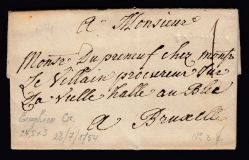 A Monsieur
Monsr Dupreneuf chez monsr
Le Villain procureur Rüe
La Vielle halle au Blé
A Bruxelle
28/7/1754